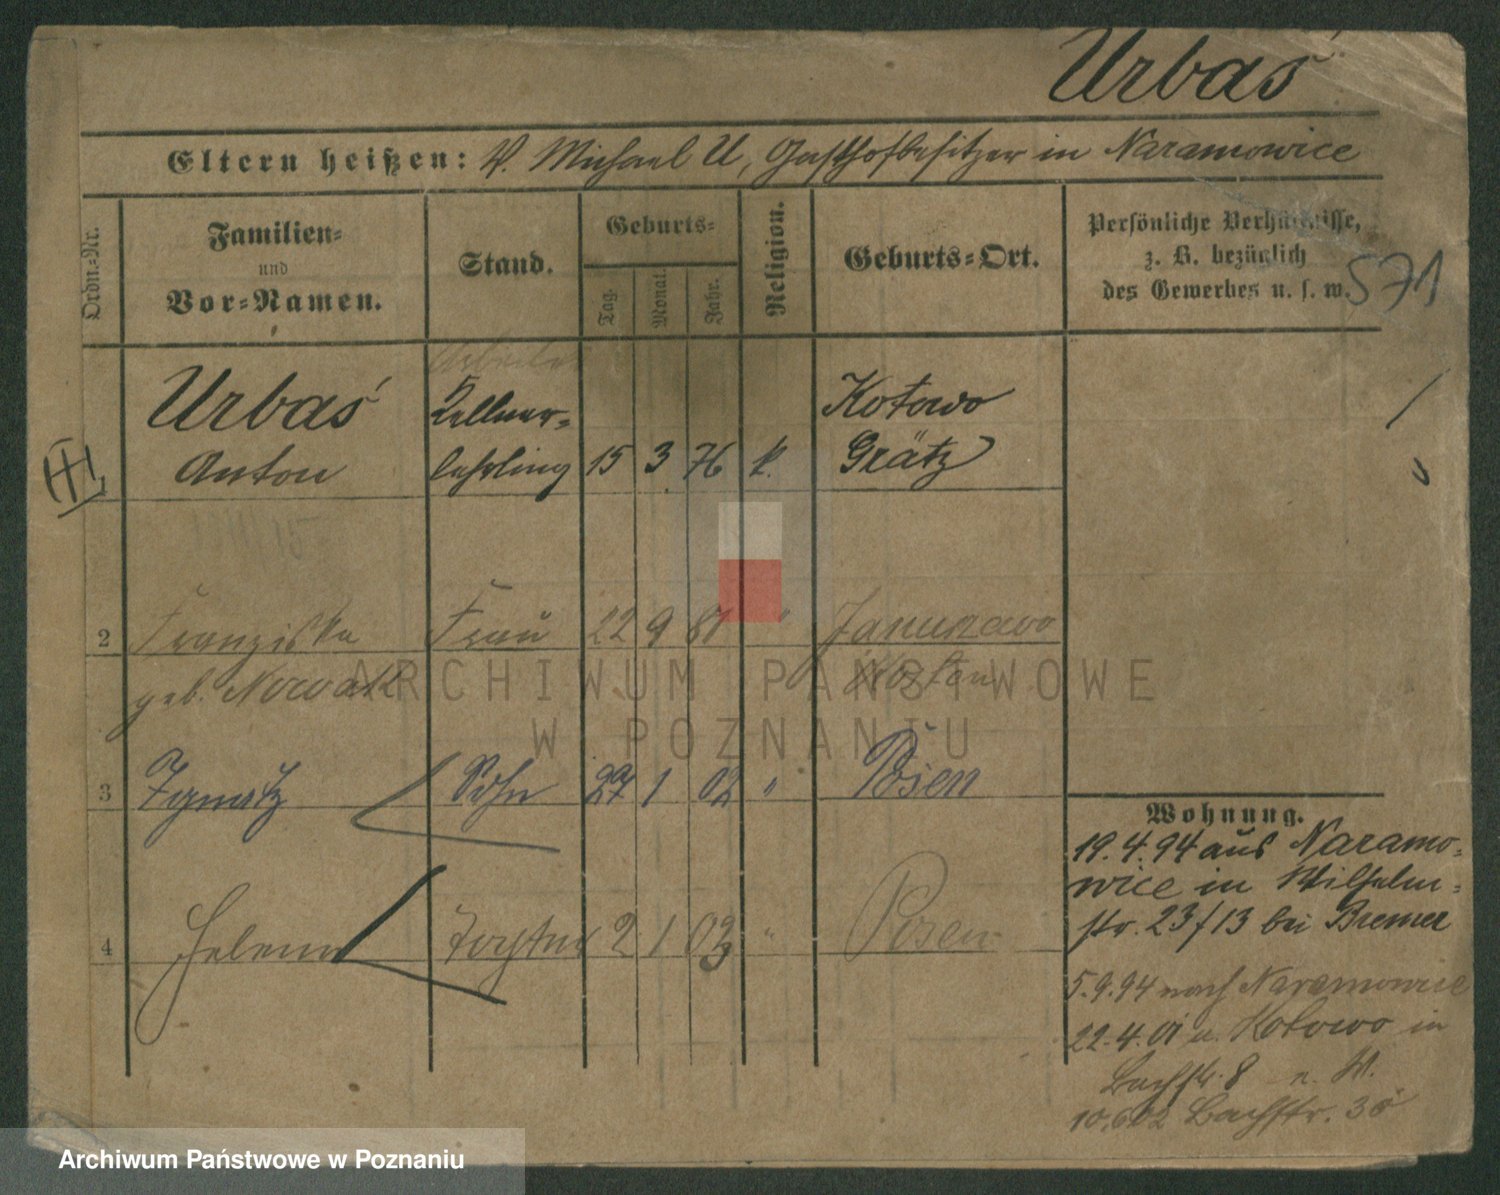 Urbaś
Eltern heißen: V. Michael U, Gasthofbesitzer in Naramowice
Ordn.-Nr.
Familien-
und
Vor-Namen.
Stand.
Geburts-
Tag.
Monat.
Jahr.
Religion.
Geburts-Ort.
Persönliche Verhältnisse,
z. B. bezüglich
des Gewerbes u. s. w.
571
Arbeiter
Urbaś Kellner- Kotowo
Anton lehrling 15 3 76 k. Grätz
2 Franziska Frau 22 9 81 " Januszewo
geb. Nowak Kosten
3 Ignatz Sohn 27 1 02 " Posen
4 Helena Tochter 2 1 03 " Posen
Wohnung.
19.4.94 aus Naramo-
wice in Wilhelm-
str. 23/13 bei Bremer
5.9.94 nach Naramowice
22.4.01 v. Kotowo in
Bachstr. 8 n. W.
10.6.02 Bachstr.
ARCHIWUM PAŃSTWOWE
W POZNANIU
Archiwum Państwowe w Poznaniu